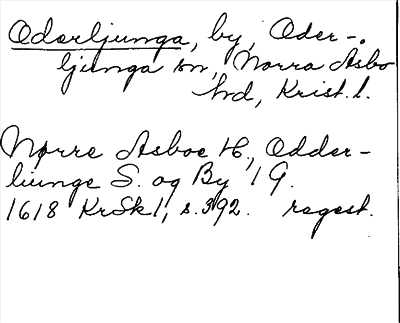 Oderljunga, by, Oder-
ljunga sn, Norra Åsbo
hd, Krist. l.
Nørre Asboe H., Odder-
liunge S. og By 1 G.
1618 KrSk 1, s. 392. regest.